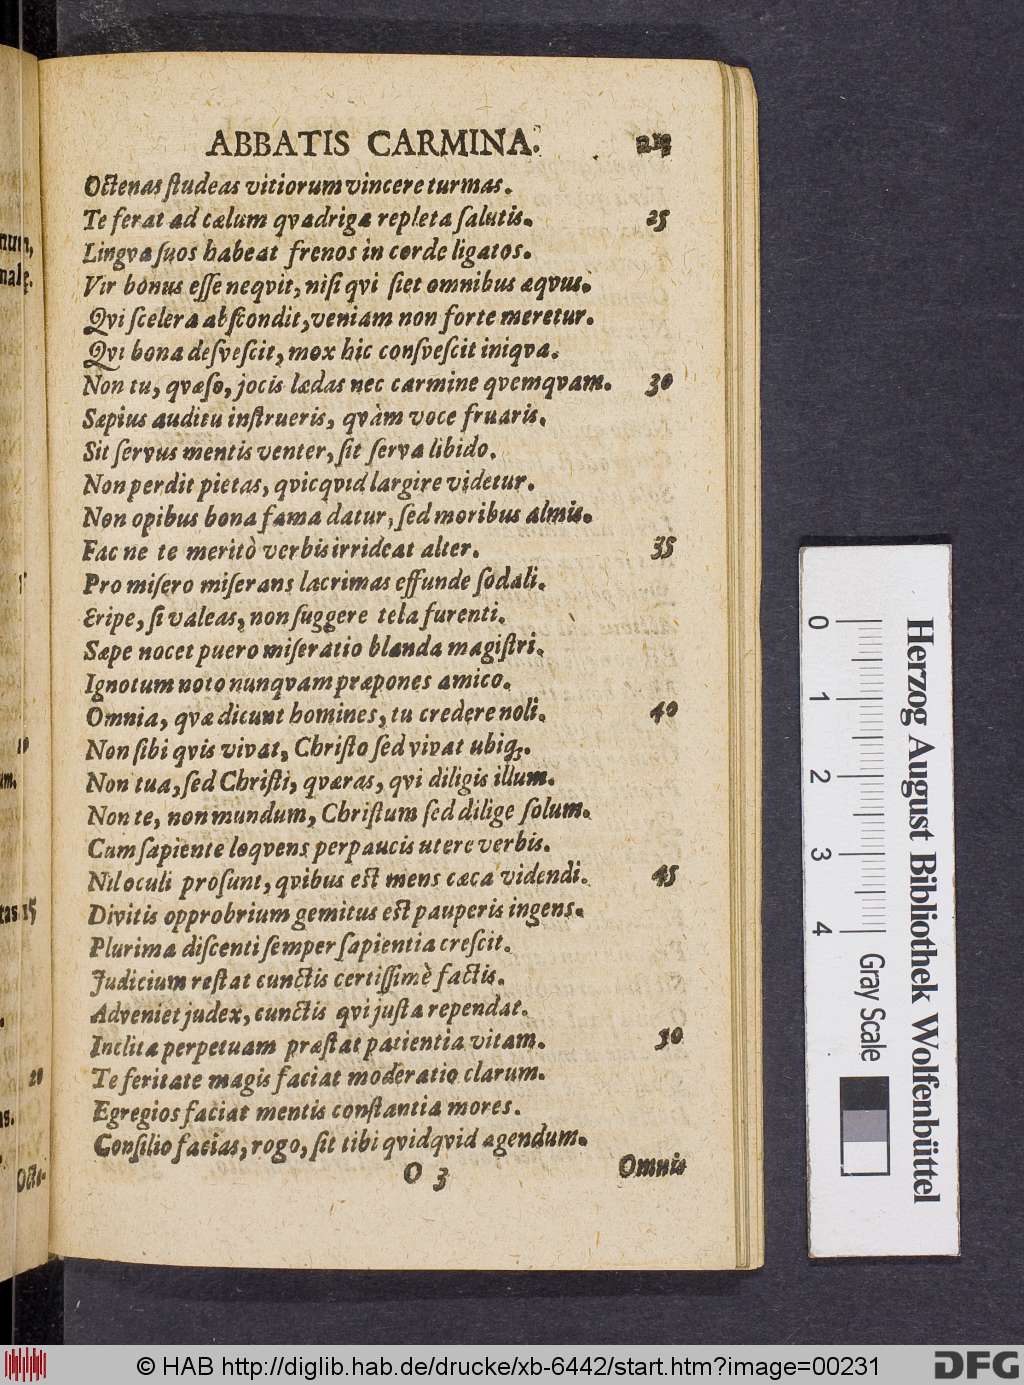 ABBATIS CARMINA. 213
Octenas ſtudeas vitiorum vincere turmas.
Te ferat ad cælum qvadriga repleta ſalutis. 25
Lingva ſuos habeat frenos in corde ligatos.
Vir bonus eſſe neqvit, niſi qvi ſiet omnibus æqvus.
Qvi ſcelera abſcondit, veniam non forte meretur.
Qvi bona deſveſcit, mox hic conſveſcit iniqva.
Non tu, qvæſo, jocis lædas nec carmine qvemqvam. 30
Sæpius auditu inſtrueris, qvàm voce fruaris.
Sit ſervus mentis venter, ſit ſerva libido.
Non perdit pietas, qvicqvid largire videtur.
Non opibus bona fama datur, ſed moribus almis.
Fac ne te meritò verbis irrideat alter. 35
Pro miſero miſerans lacrimas effunde ſodali.
Eripe, ſi valeas, non ſuggere tela furenti.
Sæpe nocet puero miſeratio blanda magiſtri.
Ignotum noto nunqvam præpones amico.
Omnia, qvæ dicunt homines, tu credere noli. 40
Non ſibi qvis vivat, Chriſto ſed vivat ubiq;.
Non tua, ſed Chriſti, qværas, qvi diligis illum.
Non te, non mundum, Chriſtum ſed dilige ſolum.
Cum ſapiente loqvens perpaucis utere verbis.
Nil oculi proſunt, qvibus eſt mens cæca videndi. 45
Divitis opprobrium gemitus eſt pauperis ingens.
Plurima diſcenti ſemper ſapientia creſcit.
Judicium reſtat cunctis certiſſimè factis.
Adveniet judex, cunctis qvi juſta rependat.
Inclita perpetuam præſtat patientia vitam. 50
Te feritate magis faciat moderatio clarum.
Egregios faciat mentis conſtantia mores.
Conſilio facias, rogo, ſit tibi qvidqvid agendum.
O 3 Omnis
10
15
20
Octe-
0 1 2 3 4
Gray Scale
Herzog August Bibliothek Wolfenbüttel
© HAB http://diglib.hab.de/drucke/xb-6442/start.htm?image=00231
DFG